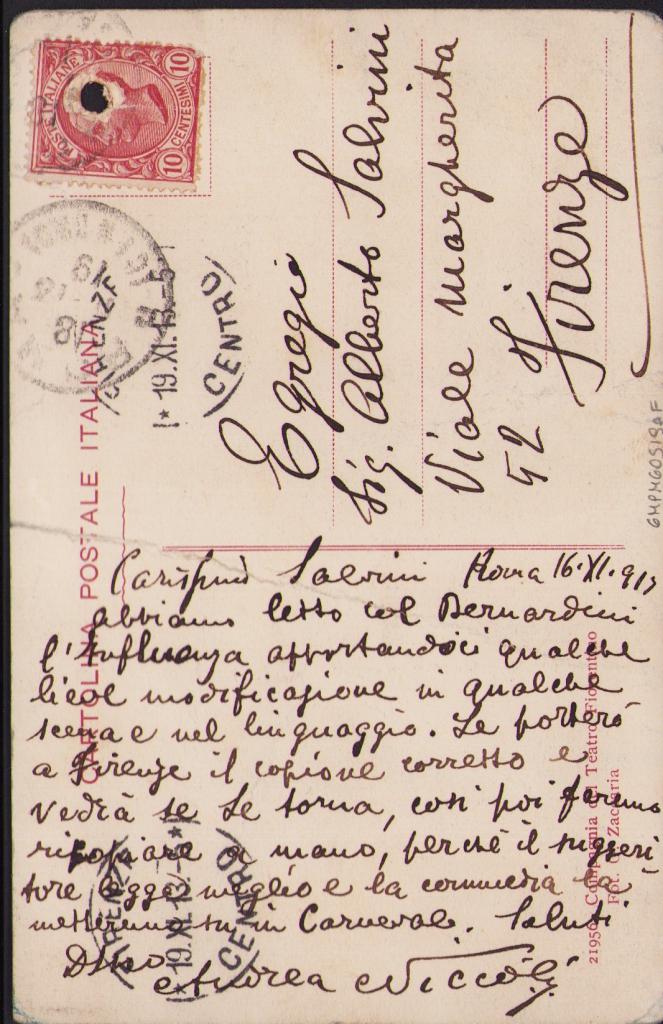 POSTE ITALIANE
10 CENTESIMI 10
FIRENZE
* 19.XI.13. 5
(CENTRO)
CARTOLINA POSTALE ITALIANA
Egregio
Sig. Alberto Salvini
Viale Margherita
52
Firenze
GMPMGO519AF
Carissimo Salvini Roma 16.XI.913
abbiamo letto col Bernardini
l'Influenza apportandoci qualche
lieve modificazione in qualche
scena e nel linguaggio. Le porterò
a Firenze il copione corretto e
vedrà se Le torna, così poi faremo
ricopiare a mano, perché il suggeri
tore legga meglio e la commedia la
metteremo su in Carnevale. Saluti
Dmo
Andrea Niccòli
FIRENZE
* 19.XI.13. 5 *
(CENTRO)
21956 Compagnia del Teatro Fiorentino
Fot. Zaccaria